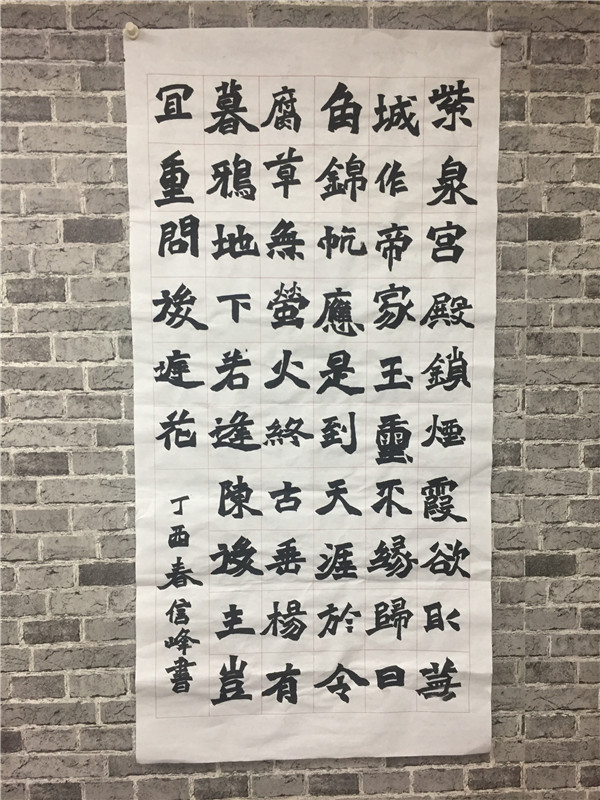 紫泉宮殿鎖煙霞欲取蕪
城作帝家玉璽不緣歸日
角錦帆應是到天涯於令
腐草無螢火終古垂楊有
暮鴉地下若逢陳後主豈
冝重問後庭花
丁酉春信峰書